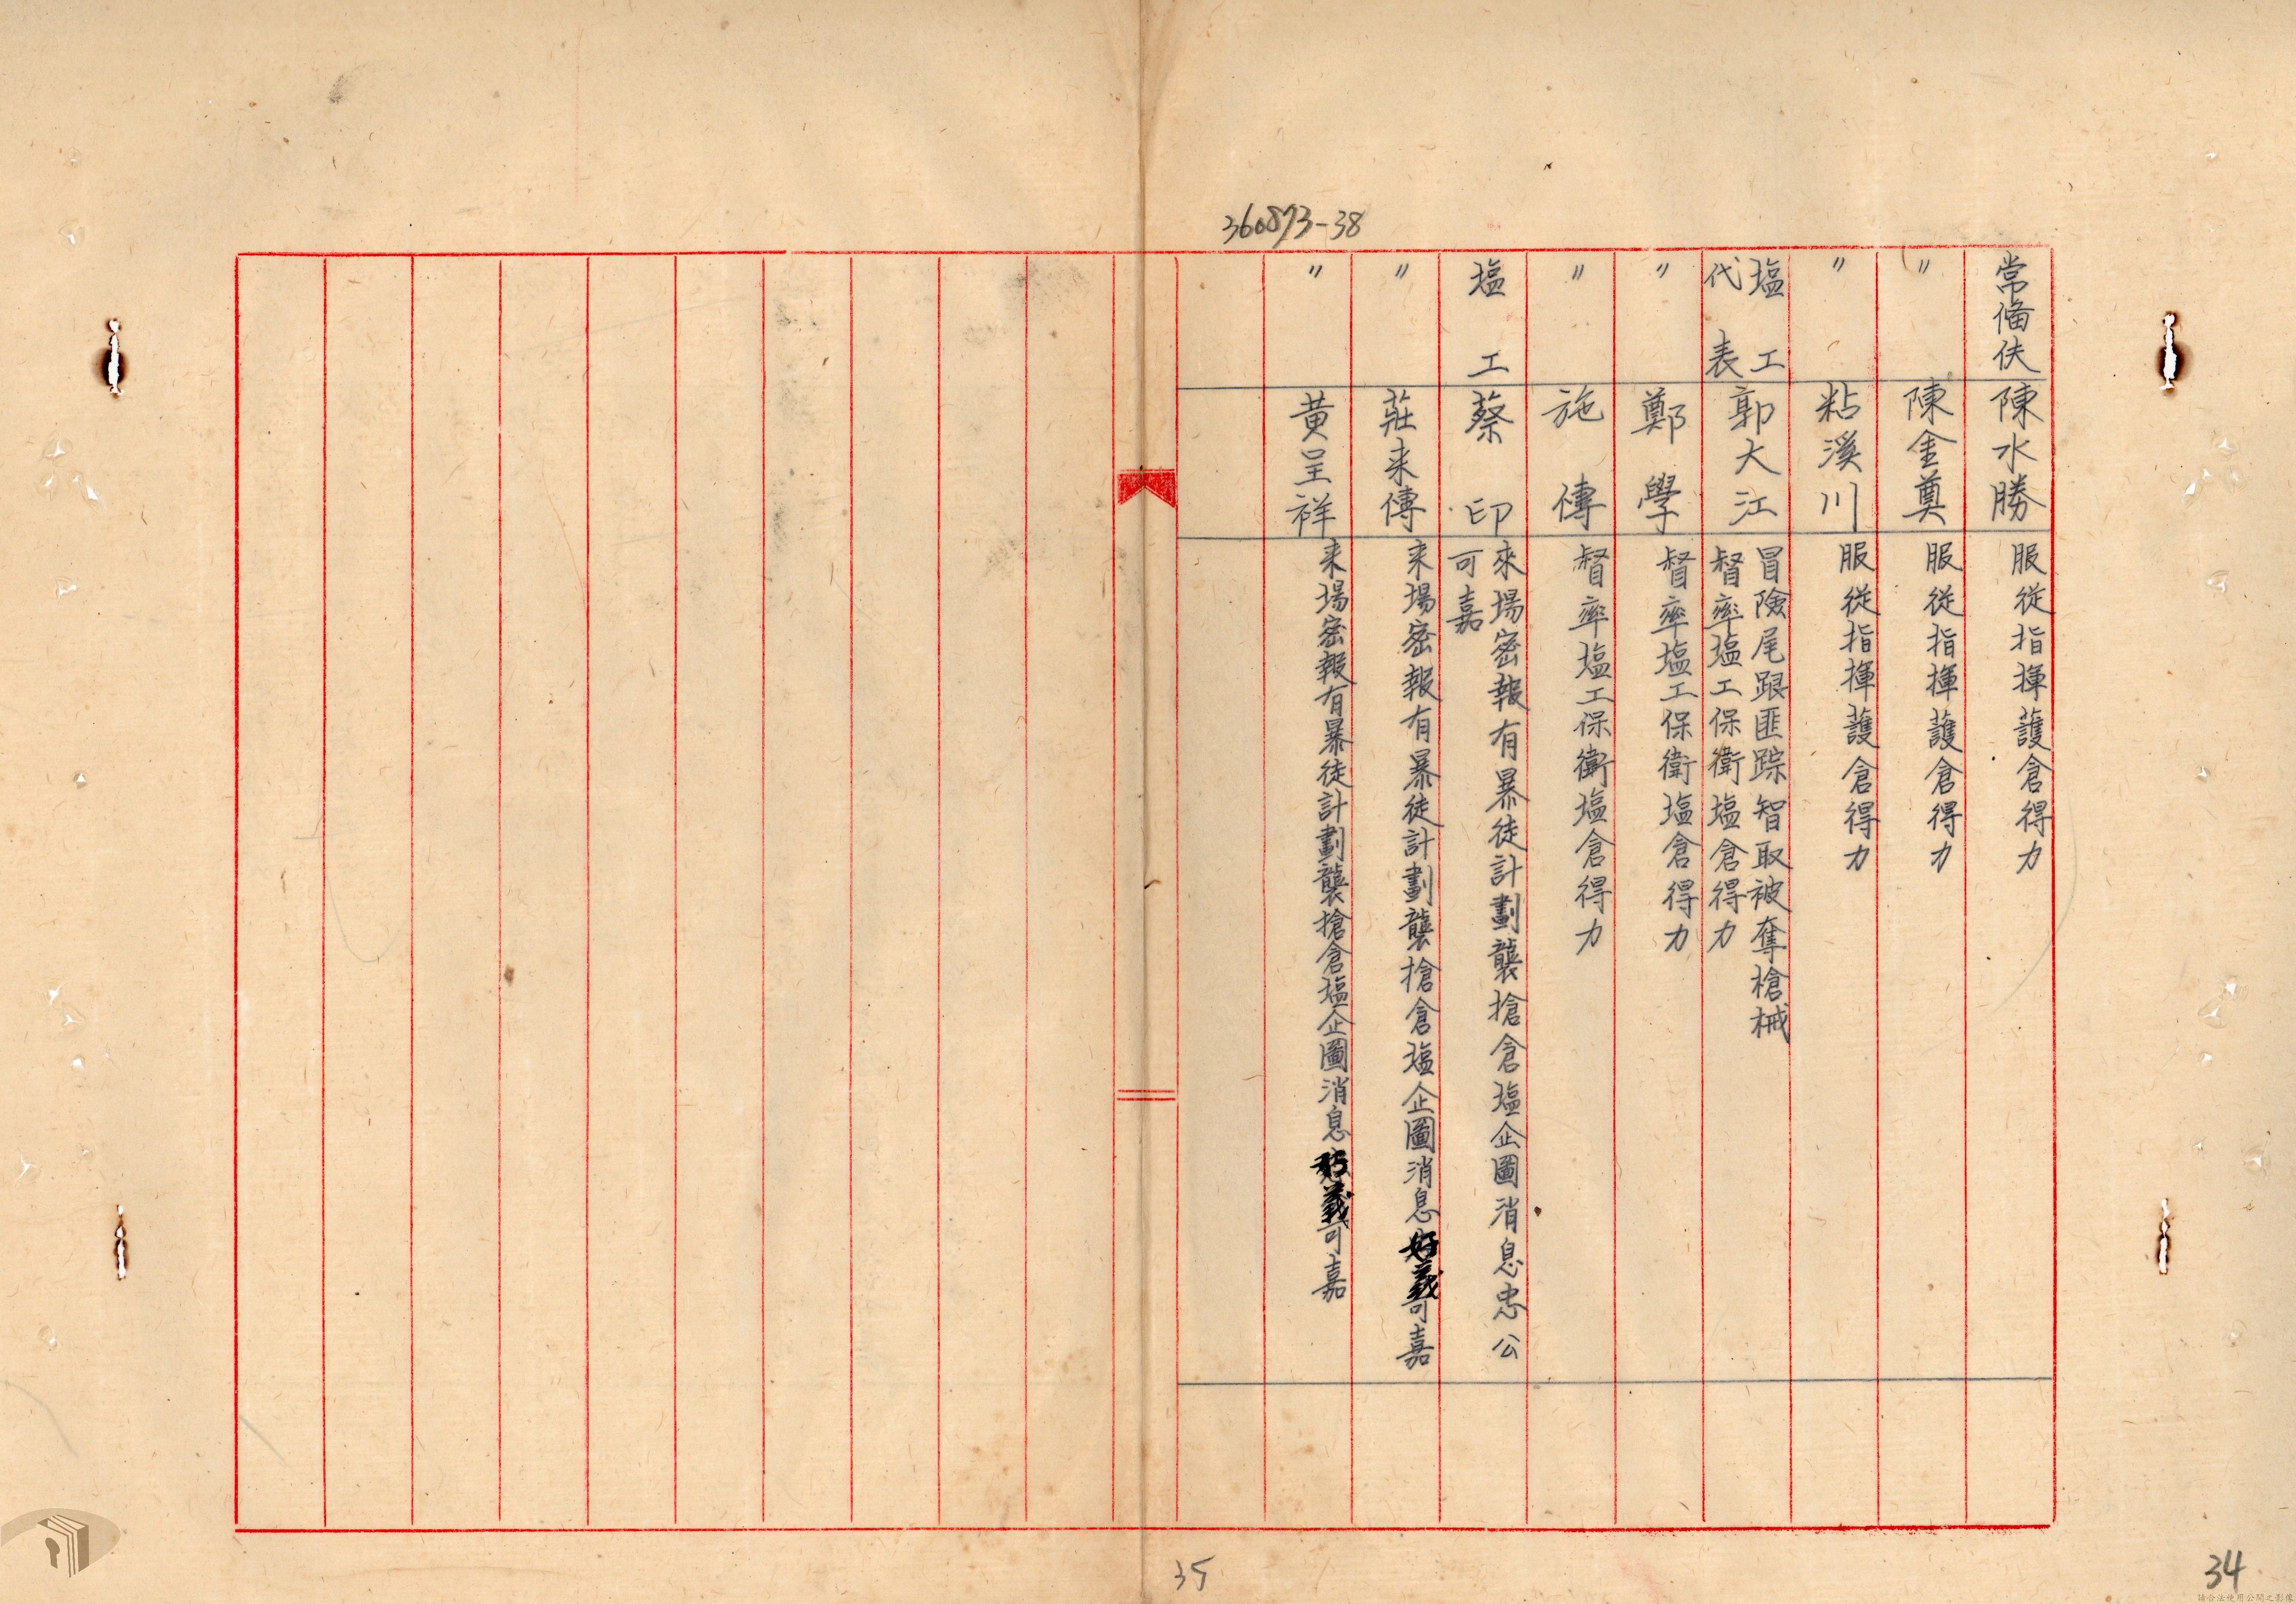 360873-38
常備伕 陳水勝 服從指揮護倉得力
〃 陳金奠 服從指揮護倉得力
〃 粘溪川 服從指揮護倉得力
塩工代表 郭大江 冒險尾跟匪踪智取被奪槍械
督率塩工保衛塩倉得力
〃 鄭學 督率塩工保衛塩倉得力
〃 施傳 督率塩工保衛塩倉得力
塩工 蔡印 來場密報有暴徒計劃襲搶倉塩企圖消息忠公
可嘉
〃 莊来傳 来場密報有暴徒計劃襲搶倉塩企圖消息好義可嘉
〃 黃呈祥 来場密報有暴徒計劃襲搶倉塩企圖消息好義可嘉
35
34
請合法使用公開之影像